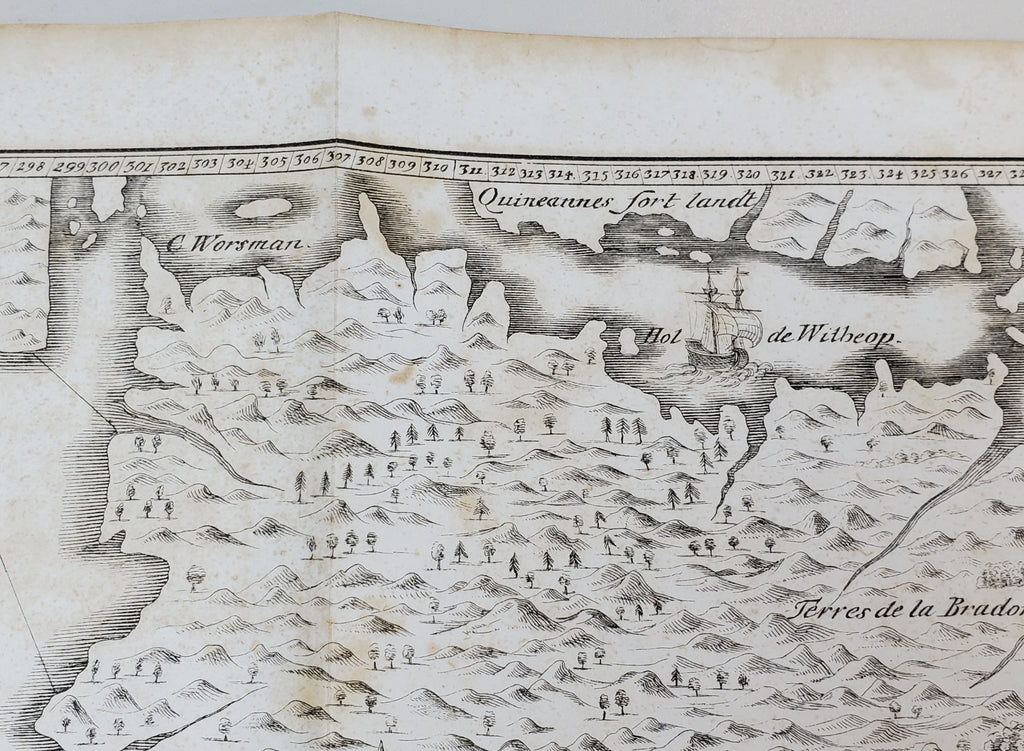 298 299 300 301 302 303 304 305 306 307 308 309 310 311 312 313 314 315 316 317 318 319 320 321 322 323 324 325 326 327
Quineannes fort landt
C. Worsman.
Hol de Witheop.
Terres de la Brador